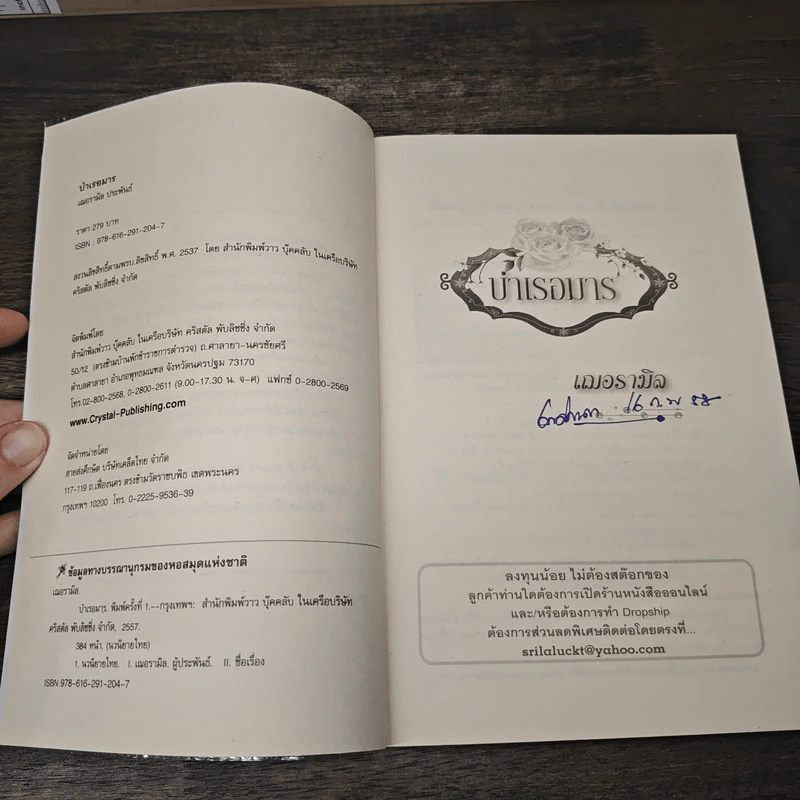 บำเรอมาร
เฌอรามิล ประพันธ์
ราคา 279 บาท
ISBN : 978-616-291-204-7
สงวนลิขสิทธิ์ตามพรบ.ลิขสิทธิ์ พ.ศ. 2537 โดย สำนักพิมพ์วาว บุ๊คคลับ ในเครือบริษัท
คริสตัล พับลิชชิ่ง จำกัด
จัดพิมพ์โดย
สำนักพิมพ์วาว บุ๊คคลับ ในเครือบริษัท คริสตัล พับลิชชิ่ง จำกัด
50/12 (ตรงข้ามบ้านพักข้าราชการตำรวจ) ถ.ศาลายา-นครชัยศรี
ตำบลศาลายา อำเภอพุทธมณฑล จังหวัดนครปฐม 73170
โทร.02-800-2568, 0-2800-2611 (9.00-17.30 น. จ-ศ) แฟกซ์ 0-2800-2569
www.Crystal-Publishing.com
จัดจำหน่ายโดย
สายส่งศึกษิต บริษัทเคล็ดไทย จำกัด
117-119 ถ.เฟื่องนคร ตรงข้ามวัดราชบพิธ เขตพระนคร
กรุงเทพฯ 10200 โทร. 0-2225-9536-39
ข้อมูลทางบรรณานุกรมของหอสมุดแห่งชาติ
เฌอรามิล.
บำเรอมาร. พิมพ์ครั้งที่ 1.--กรุงเทพฯ: สำนักพิมพ์วาว บุ๊คคลับ ในเครือบริษัท
คริสตัล พับลิชชิ่ง จำกัด, 2557.
384 หน้า. (นวนิยายไทย)
1. นวนิยายไทย. I. เฌอรามิล. ผู้ประพันธ์. II. ชื่อเรื่อง
ISBN 978-616-291-204-7
บำเรอมาร
เฌอรามิล
ก.พ 58
ลงทุนน้อย ไม่ต้องสต๊อกของ
ลูกค้าท่านใดต้องการเปิดร้านหนังสือออนไลน์
และ/หรือต้องการทำ Dropship
ต้องการส่วนลดพิเศษติดต่อโดยตรงที่...
srilaluckt@yahoo.com